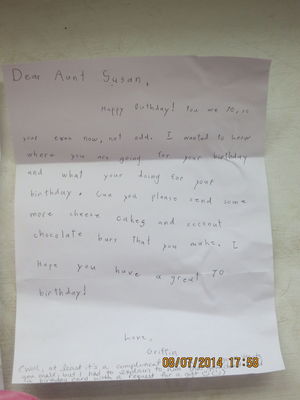 Dear Aunt Susan,
Happy Birthday! You are 70, so
your even now, not odd. I wanted to know
where you are going for your birthday
and what your doing for your
birthday. Can you please send some
more cheese cakes and coconut
chocolate bars that you make. I
Hope you have a great 70
birthday!
Love,
Griffin
(Well, at least it's a compliment
you made, but I had to explain to him
a birthday card with a request for a gift
08/07/2014 17:58